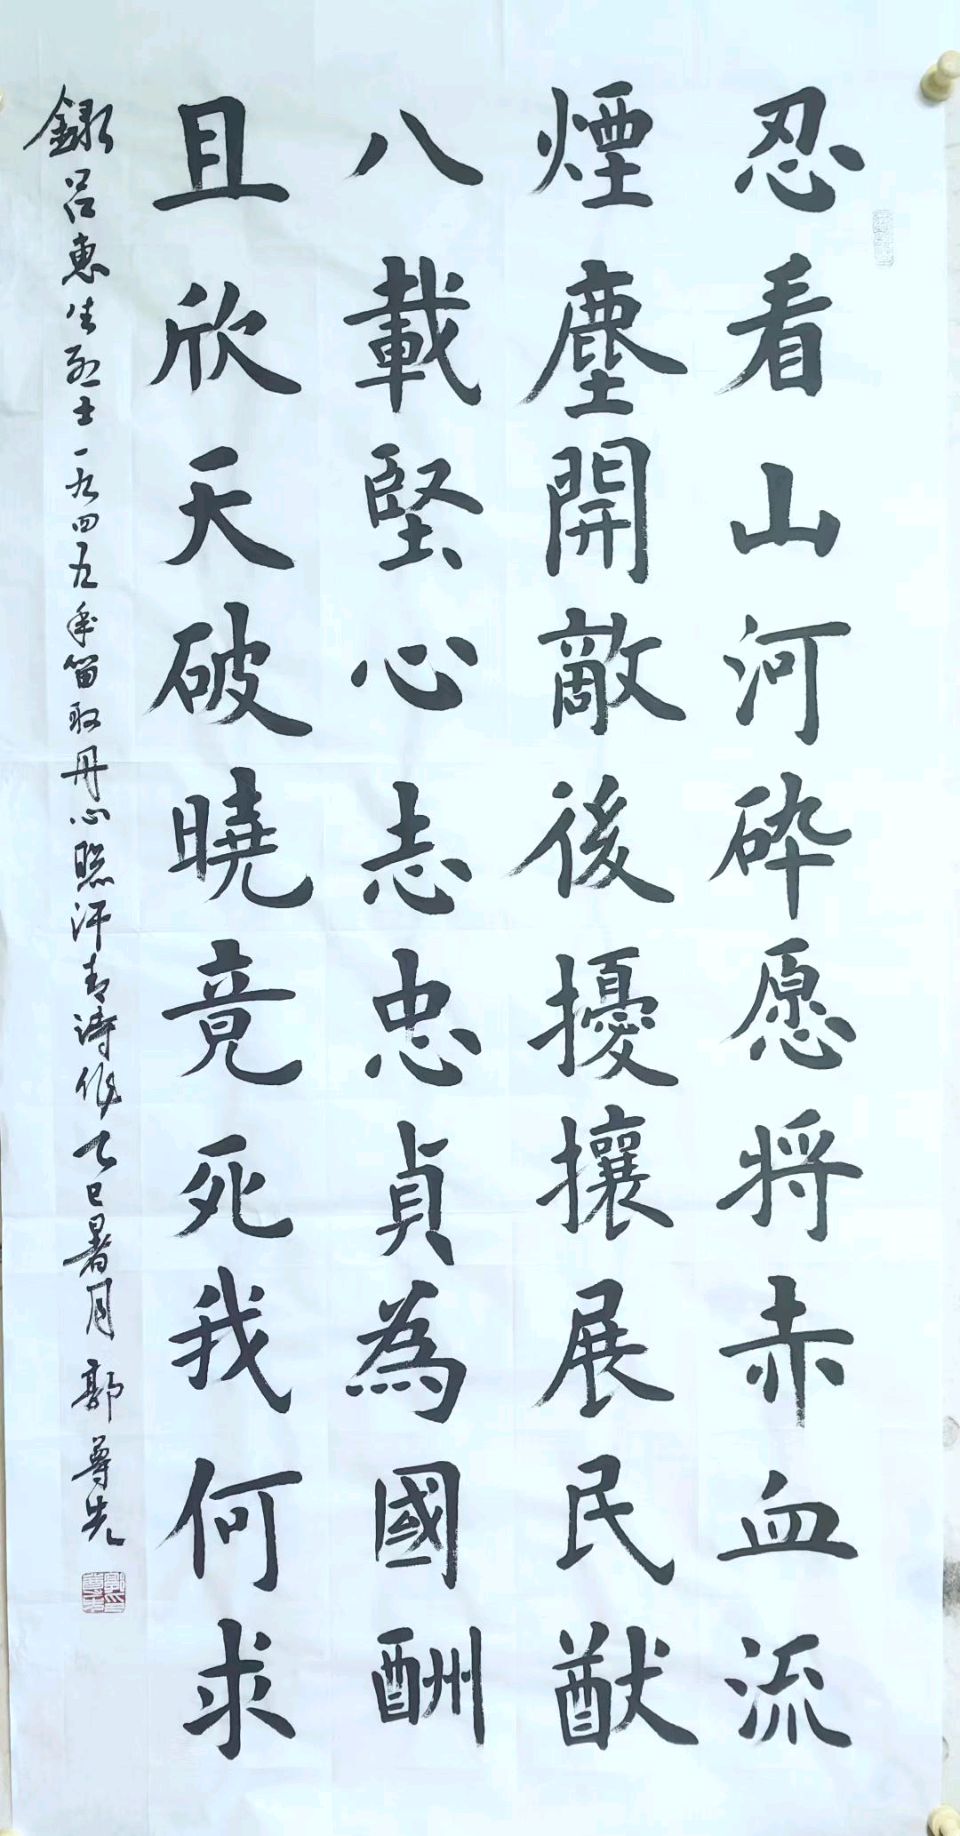 忍看山河碎愿将赤血流
煙塵開敵後擾攘展民猷
八載堅心志忠貞為國酬
且欣天破曉竟死我何求
錄吕惠生烈士一九四五年留取丹心照汗青诗作乙巳暑月郭尊先